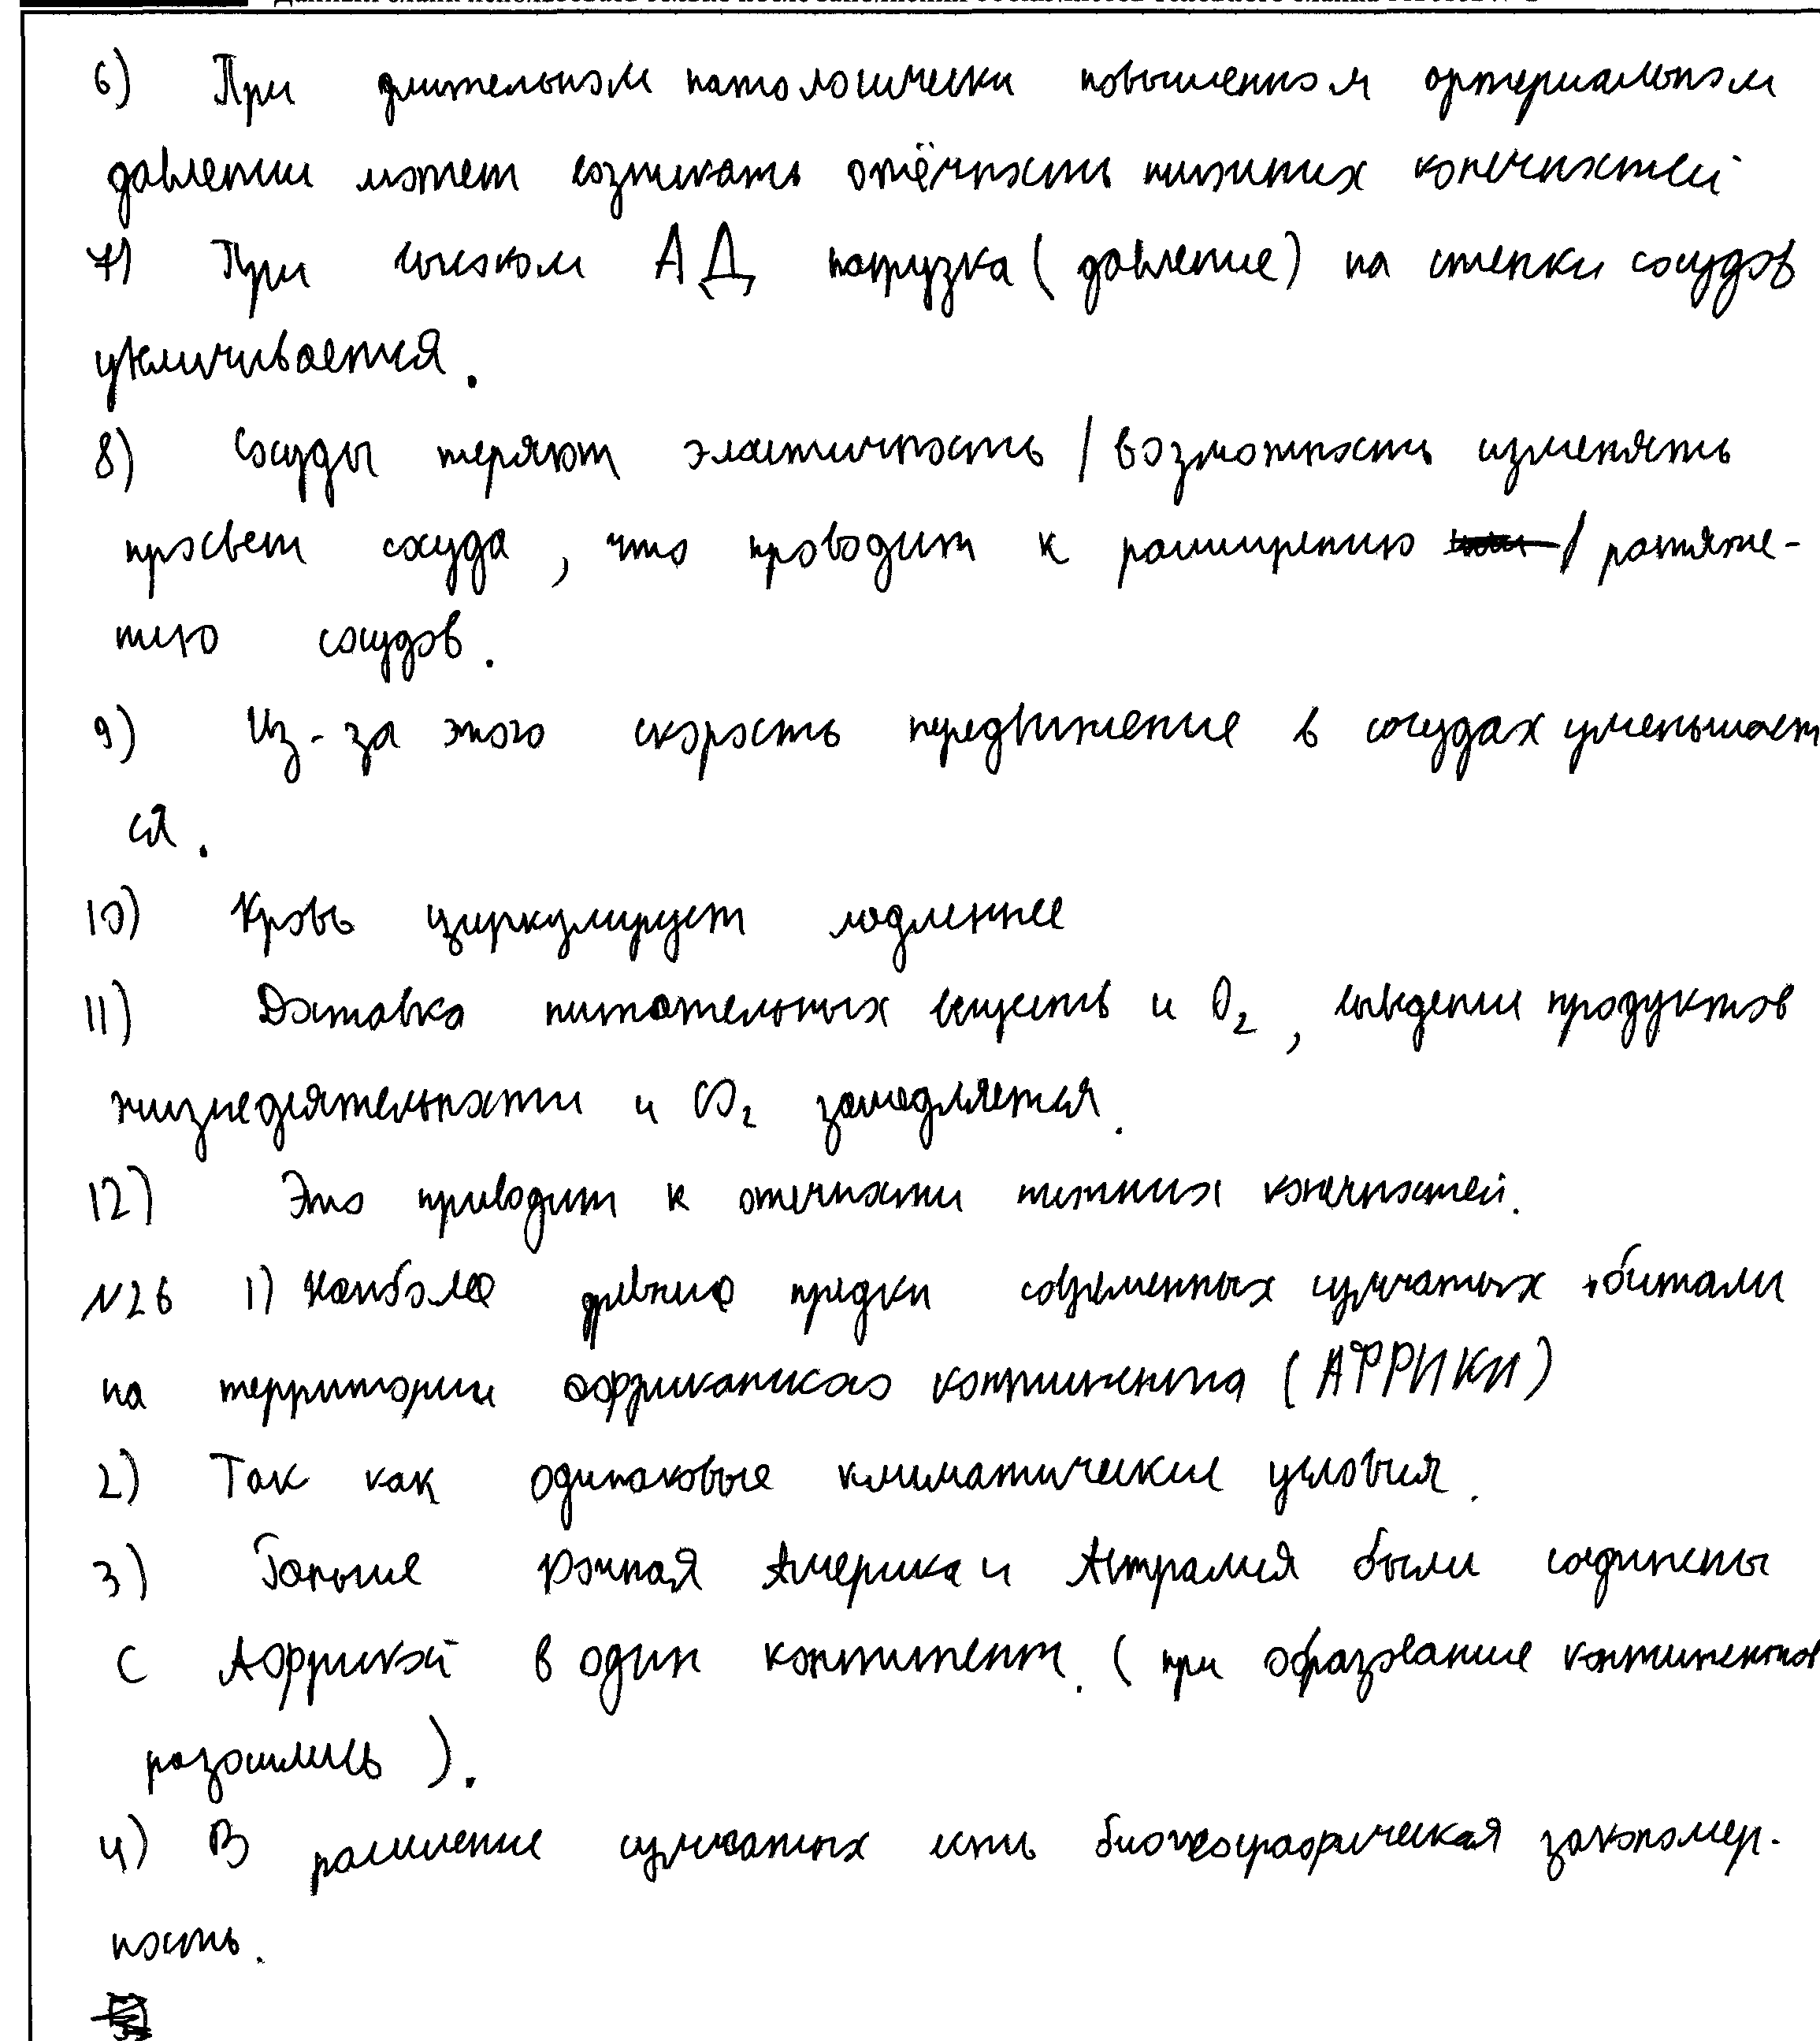 6) При длительном патологически повышенном артериальном
давлении может возникать отёчность нижних конечностей
7) При высоком АД нагрузка (давление) на стенки сосудов
увеличивается.
8) Сосуды теряют эластичность / возможность изменять
просвет сосуда, что проводит к расширению / растяже-
нию сосудов.
9) Из-за этого скорость передвижение в сосудах уменьшает
ся.
10) Кровь циркулирует медленнее
11) Доставка питательных веществ и O2, выведении продуктов
жизнедеятельности и CO2 замедляется.
12) Это приводит к отечности нижних конечностей.
№26 1) Наиболее древние предки современных сумчатых обитали
на территории африканского континента (АФРРИКИ)
2) Так как одинаковые климатические условия.
3) Раньше Южная Америка и Австралия были соединены
с Аффрикой в один континент. (при образование континентов
разошлись).
4) В расселение сумчатых есть биогеографическая закономер-
ность.